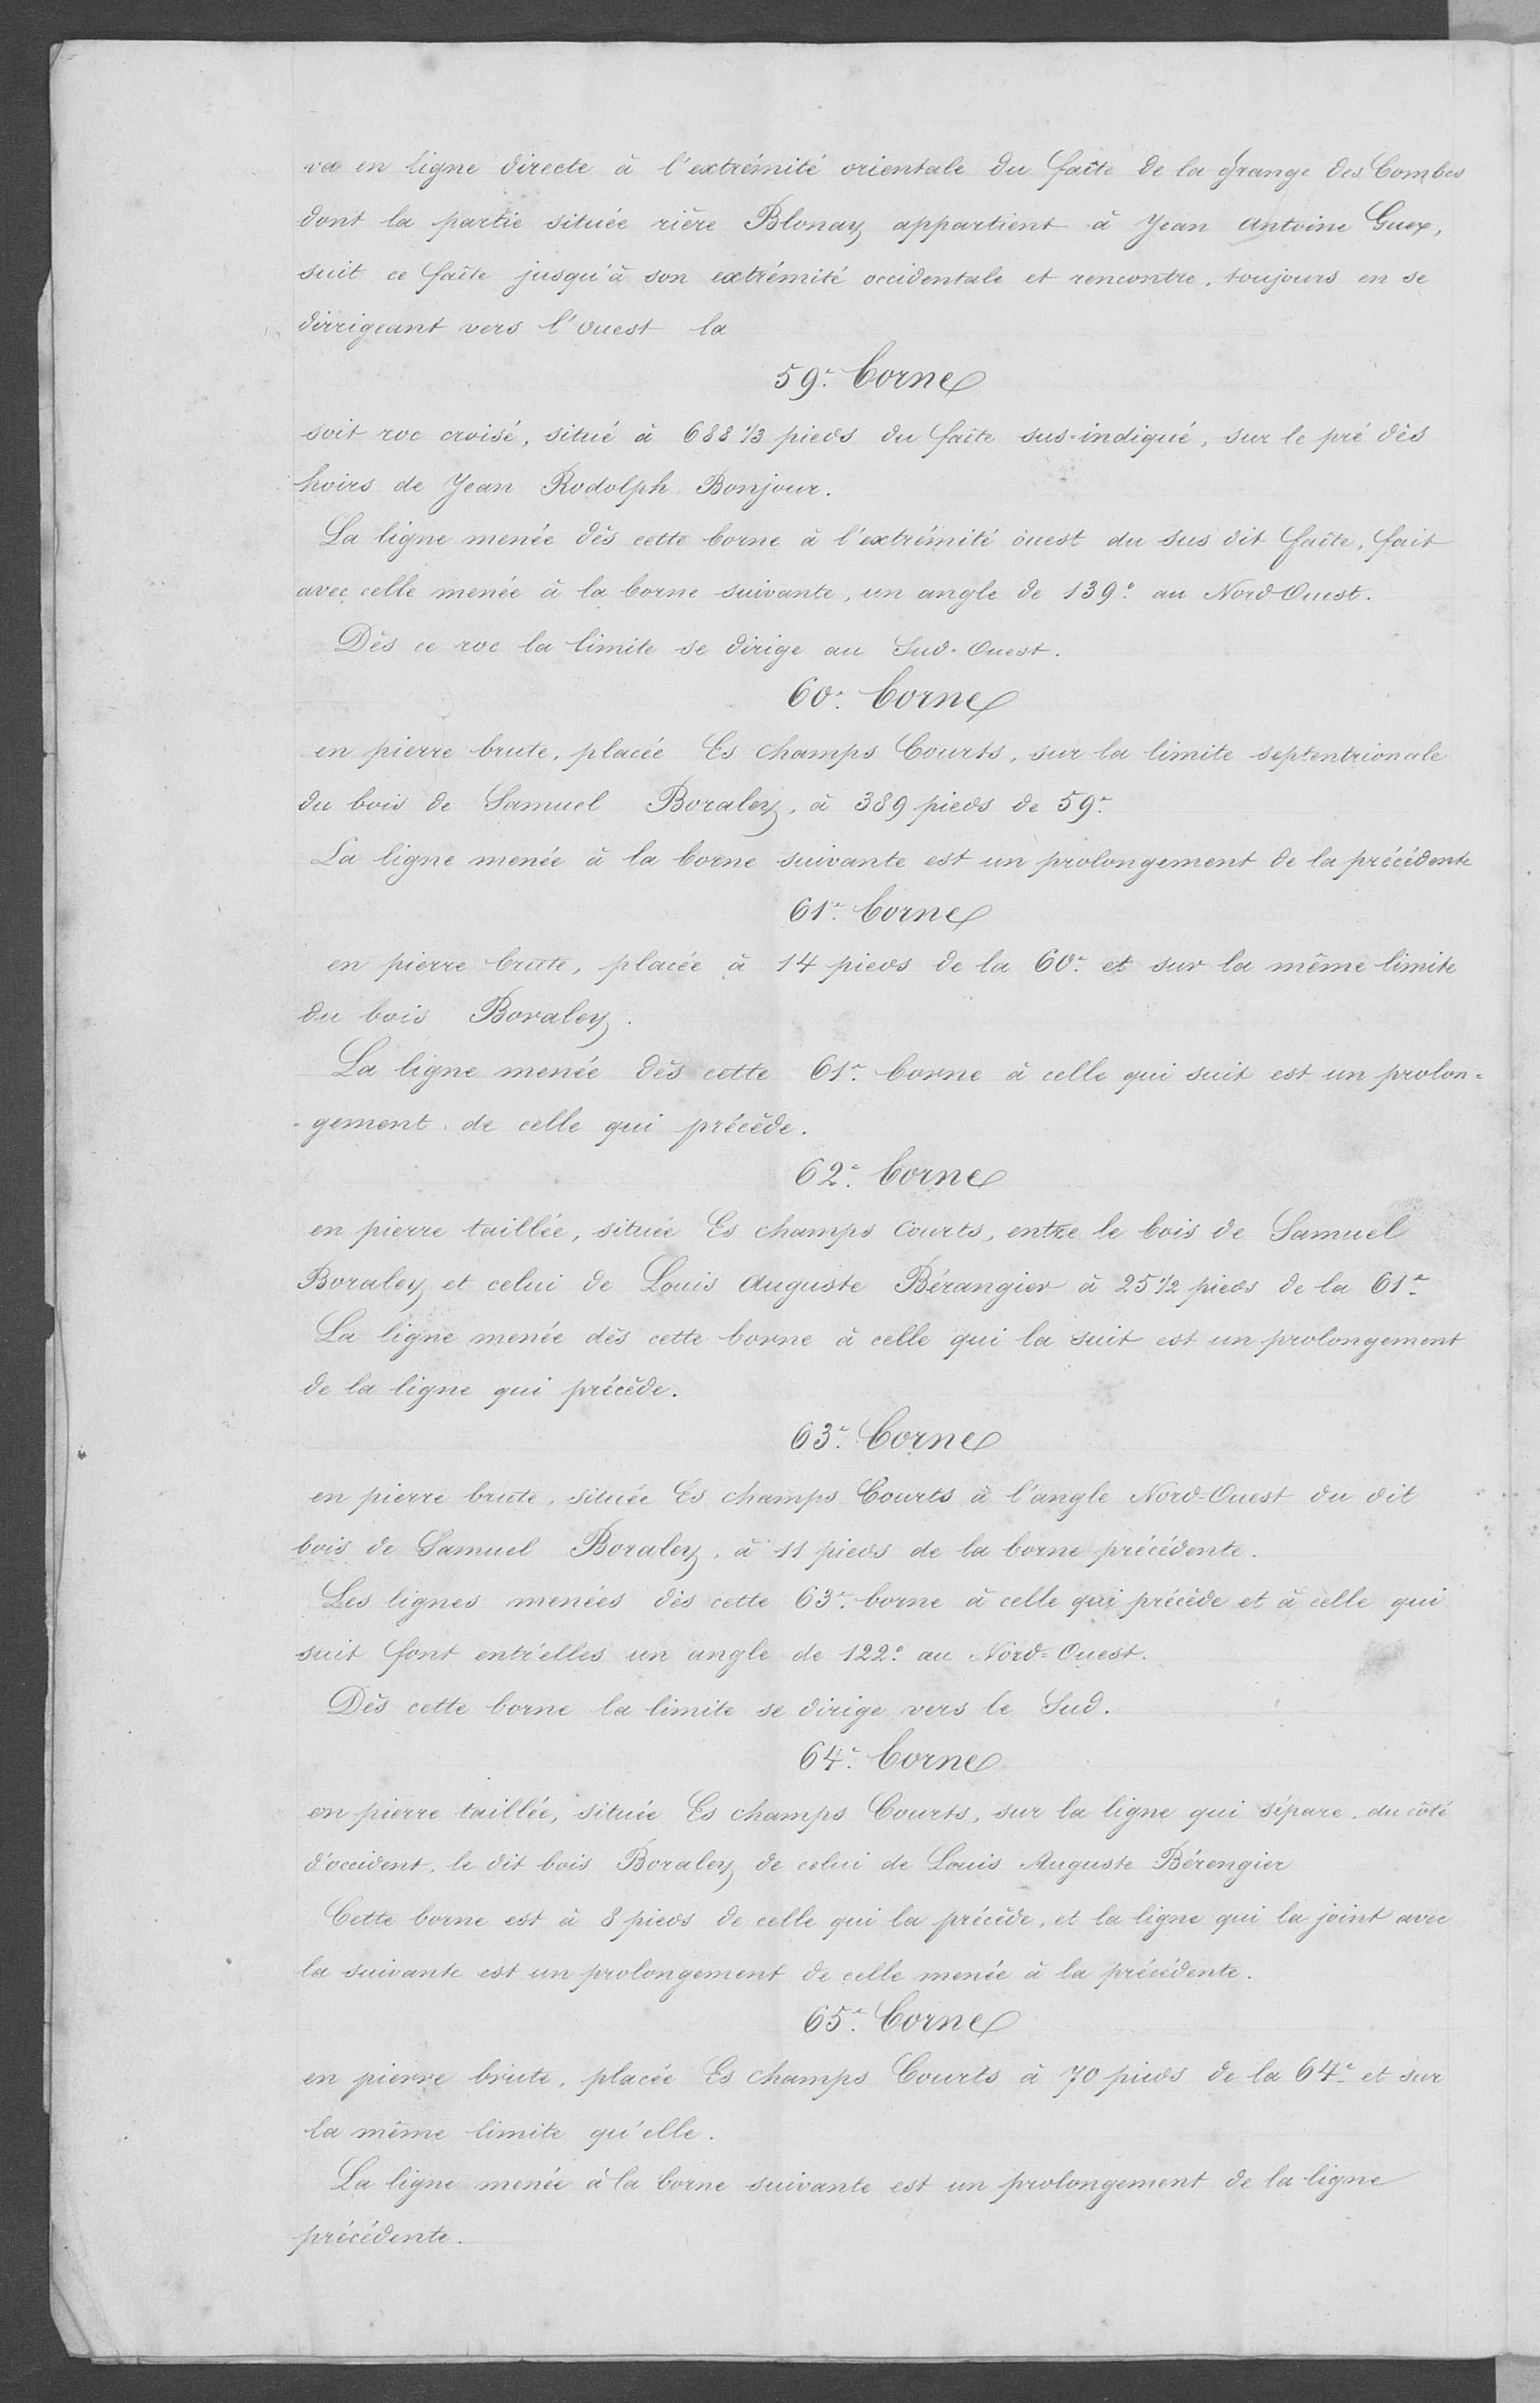 va en ligne directe à l'extrémité orientale du faîte de la grange des Combes
dont la partie située rière Blonay appartient à Jean Antoine Guex,
suit ce faîte jusqu'à son extrémité occidentale et rencontre, toujours en se
dirrigeant vers l'ouest la
59e. borne
soit roc croisé, situé à 688 1/3 pieds du faîte sus-indiqué, sur le pré dès
hoirs de Jean Rodolph Bonjour.
La ligne menée dès cette borne à l'extrémité ouest du sus dit faîte, fait
avec celle menée à la borne suivante, un angle de 139° au Nord-Ouest.
Dès ce roc la limite se dirige au Sud-Ouest.
60e. borne
en pierre brute, placée Es champs Courts, sur la limite septentrionale
du bois de Samuel Boraley, à 389 pieds de 59e.
La ligne menée à la borne suivante est un prolongement de la précédente
61e. borne
en pierre brute, placée à 14 pieds de la 60e. et sur la même limite
du bois Boraley.
La ligne menée dès cette 61e. borne à celle qui suit est un prolon-
-gement de celle qui précède.
62e. borne
en pierre taillée, située Es champs Courts, entre le bois de Samuel
Boraley et celui de Louis Auguste Bérangier à 25 1/2 pieds de la 61e.
La ligne menée dès cette borne à celle qui la suit est un prolongement
de la ligne qui précède.
63e. borne
en pierre brute, située Es champs Courts à l'angle Nord-Ouest du dit
bois de Samuel Boraley, à 11 pieds de la borne précédente.
Les lignes menées dès cette 63e. borne à celle qui précède et à celle qui
suit font entr'elles un angle de 122° au Nord-Ouest.
Dès cette borne la limite se dirige vers le Sud.
64e. borne
en pierre taillée, située Es champs Courts, sur la ligne qui sépare, du côté
d'occident, le dit bois Boraley de celui de Louis Auguste Bérengier
Cette borne est à 8 pieds de celle qui la précède, et la ligne qui la joint avec
la suivante est un prolongement de celle menée à la précédente.
65e. borne
en pierre brute, placée Es champs Courts à 70 pieds de la 64e. et sur
la même limite qu'elle.
La ligne menée à la borne suivante est un prolongement de la ligne
précédente.